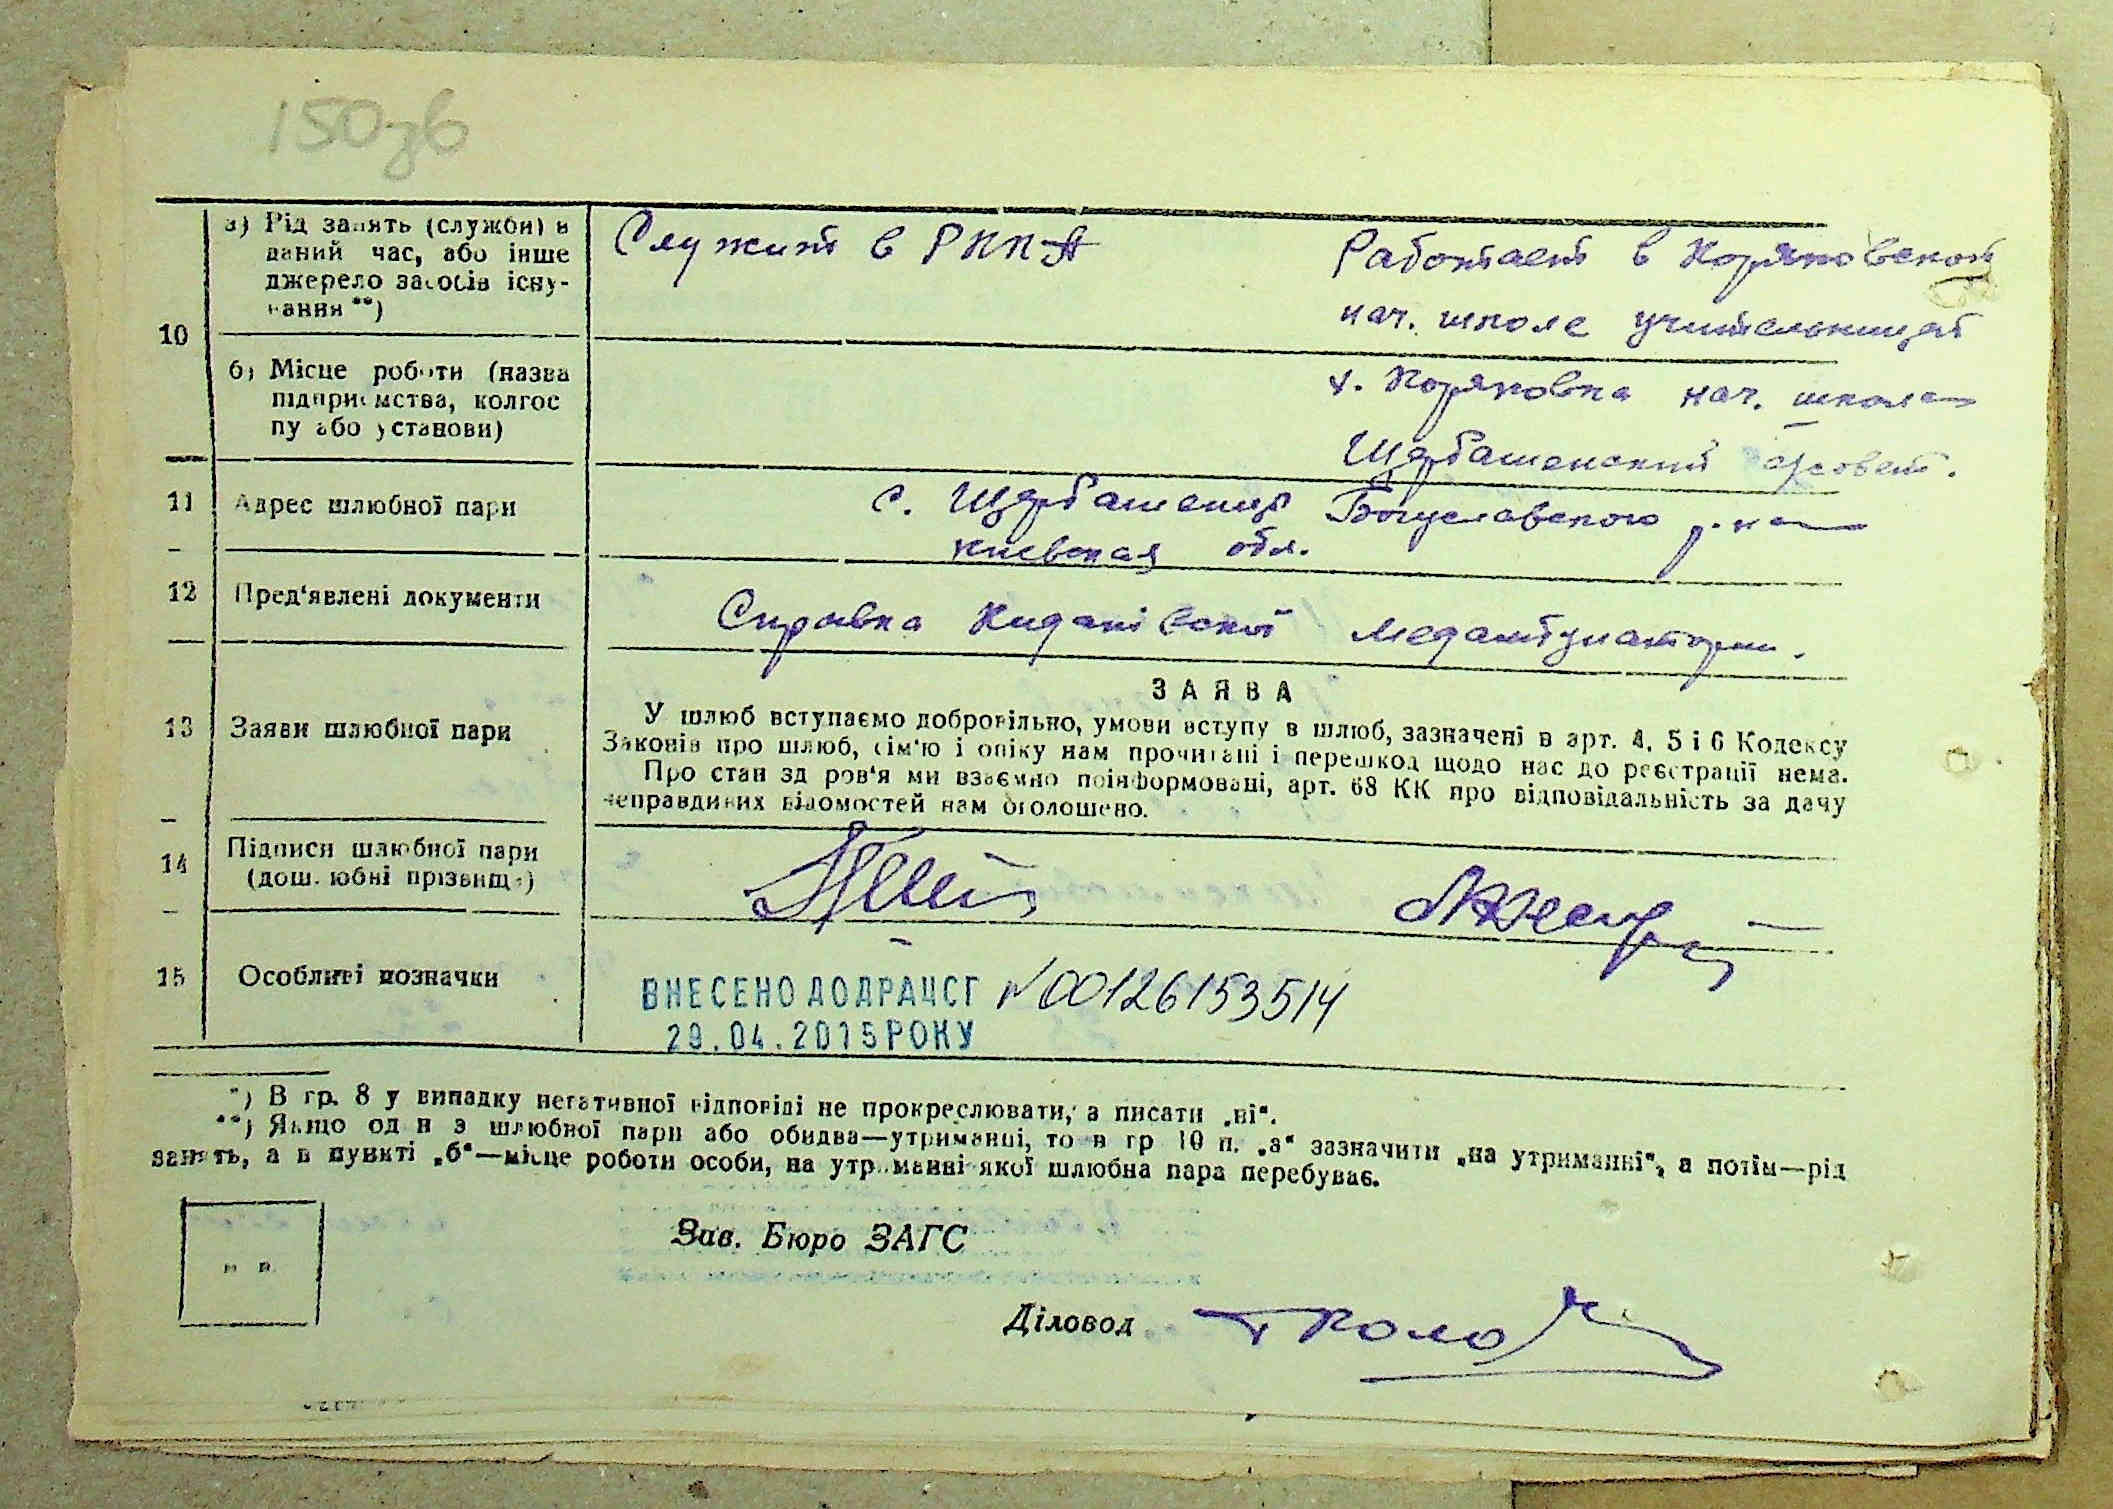 150зв
10
а) Рід занять (служби) в
даний час, або інше
джерело засобів існу-
вання **)
Служит в РККА
Работает в Коряковской
нач. школе учительницей
б) Місце роботи (назва
підприємства, колгос
пу або установи)
х. Коряковка нач. школа
Щербашенский с/совет.
11 Адрес шлюбної пари
с. Щербашенцы Богуславского р-на
Киевская обл.
12 Пред'явлені документи
Справка Киданівської медамбулатории.
13 Заяви шлюбної пари
ЗАЯВА
У шлюб вступаємо добровільно, умови вступу в шлюб, зазначені в арт. 4, 5 і 6 Кодексу
Законів про шлюб, сім'ю і опіку нам прочитані і перешкод щодо нас до реєстрації нема.
Про стан здоров'я ми взаємно поінформовані, арт. 68 КК про відповідальність за дачу
неправдивих відомостей нам оголошено.
14 Підписи шлюбної пари
(дошлюбні прізвища)
15 Особливі позначки
ВНЕСЕНО ДО ДРАЦСГ №00126153514
29.04.2015 РОКУ
*) В гр. 8 у випадку негативної відповіді не прокреслювати, а писати „ні“.
**) Якщо один з шлюбної пари або обидва—утриманці, то в гр 10 п. „а“ зазначити „на утриманні“, а потім—рід
занять, а в пункті „б“—місце роботи особи, на утриманні якої шлюбна пара перебуває.
Зав. Бюро ЗАГС
Діловод